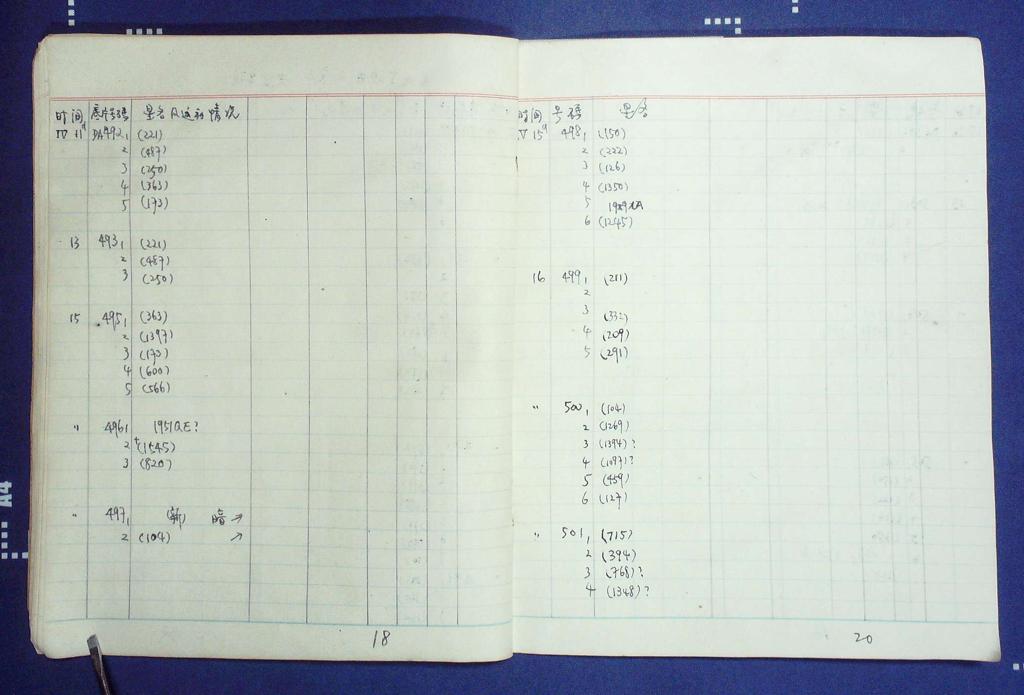 时间 底片号码 星名及运动情况
IV 11 PA492₁ (221)
2 (487)
3 (250)
4 (363)
5 (173)
13 493₁ (221)
2 (487)
3 (250)
15 495₁ (363)
2 (1397)
3 (173)
4 (600)
5 (566)
" 496₁ 1951QE?
2 (1545)
3 (820)
" 497₁ (新) 暗 ↗
2 (104) ↗
18
时间 号码 星名
IV 15 498₁ (150)
2 (222)
3 (126)
4 (1350)
5
6 (1245)
16 499₁ (211)
2
3
4 (209)
5 (291)
" 500₁ (104)
2 (1269)
3 (1394)?
4 (1097)?
5 (459)
6 (127)
" 501₁ (715)
2 (394)
3 (768)?
4 (1348)?
20
A4